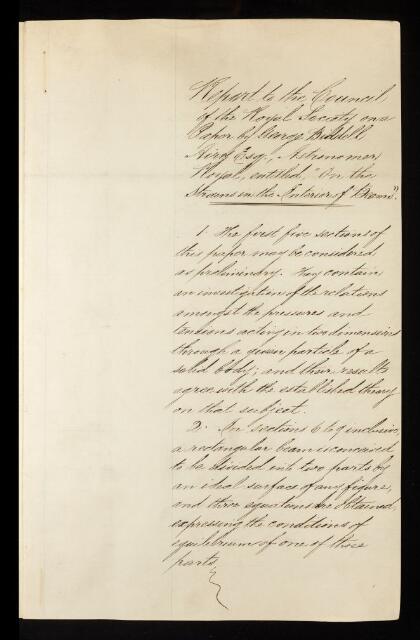 Report to the Council
of the Royal Society on a
Paper by George Biddell
Airy Esq., Astronomer
Royal, entitled, "On the
Strains in the Interior of Beams".
1. The first five sections of
this paper may be considered
as preliminary. They contain
an investigation of the relations
amongst the pressures and
tensions acting in two dimensions
through a given particle of a
solid body; and their results
agree with the established theory
on that subject.
2. In sections 6 to 9 inclusive,
a rectangular beam is conceived
to be divided into two parts by
an ideal surface of any figure,
and three equations are obtained,
expressing the conditions of
equilibrium of one of those
parts.